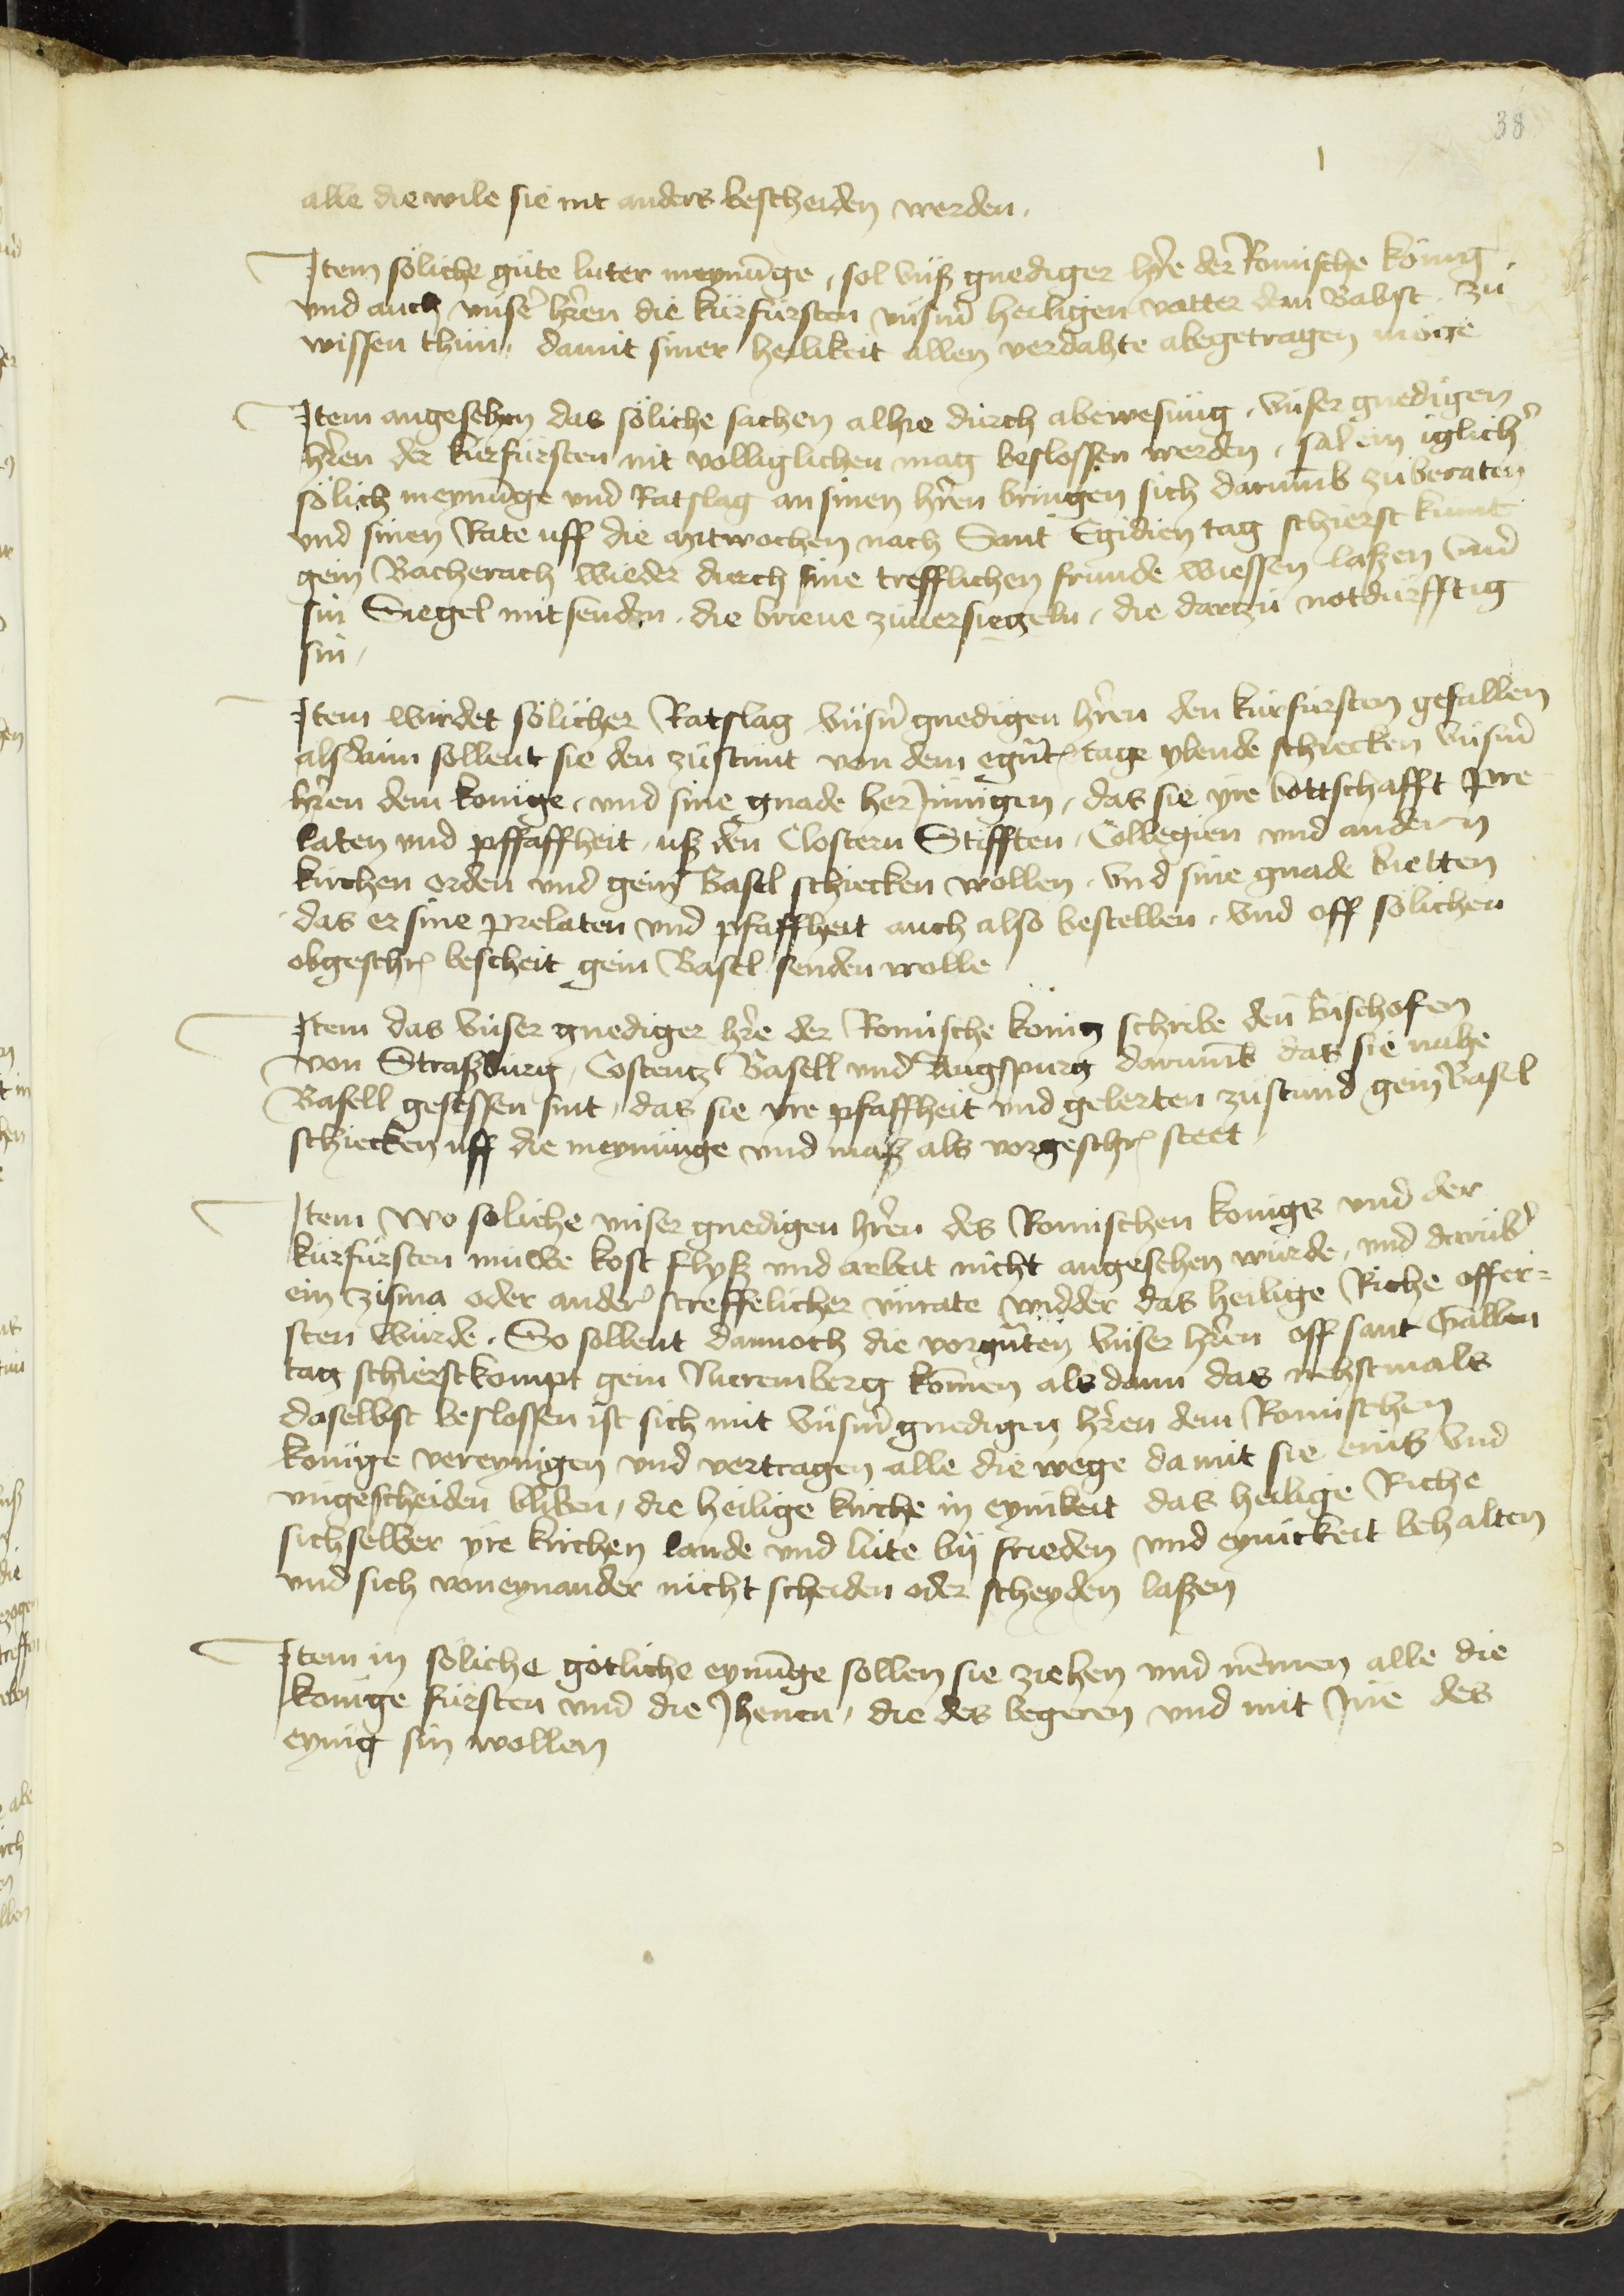 38
alle die wile sie nit anders bescheiden werden,
Item söliche güte luter meynu̅ge, sol vnß gnediger h̅re der Romische König,
vnd auch vnser̅ h̅ren die kürfürsten vnserm heiligen vatter dem Babst zü
wissen thün, damit siner heilikeit allen verdahte abegetragen möge
Item angesehen das söliche sachen alhie durch abewesung, vnser gnedigen
h̅ren der kurfürsten nit volliglichen mag beslossen werden, sal ein iglich̅
sölich meynu̅ge vnd Ratslag an sinen h̅ren bringen sich daru̅mb zü beraten
vnd sinen Rate uff die mitwochen nach Sant Egidien tag schierst kumt
gein Bacherach wieder durch sine trefflichen frunde wiessen laßen vnd
sin Siegel mit senden, die brieue zuuersiegeln, die darzü notdürfftig
sin,
Item würdet sölicher Ratslag vnsern gnedigen h̅ren den kürfürsten gefallen
alsdann sollent sie den züstunt von dem egn̅t tage ylende schiecken vnserm
h̅ren dem konige, vnd sine gnade her Innigen, das sie yre bottschafft pre
laten vnd pffaffheit, uß den Clostern Stifften, Collegien vnd andern
kirchen orden vnd gein Basel schiecken wollen, vnd sine gnade bietten
das er sine prelaten vnd pfaffheit auch also bestellen, vnd off sölichen
obgeschr bescheit gein Basel senden wolle
Item das vnser gnediger h̅re der Romische König schribe den Bischofen
von Straßburg, Costentz Basell vnd Augspurg daru̅mb das sie nahe
Basell gesessen sint, das sie yre pfaffheit vnd gelerten züstünd gein Basel
schiecken uff die meynunge vnd maß als vorgeschr steet
Item wo soliche vnser gnedigen h̅ren des Romischen konigs vnd der
kürfürsten müwe kost flyß vnd arbeit nicht angesehen würde, vnd darüb̅
ein zisma oder ander̅ streffelicher vnrate widder das heilige Riche offer=
sten würde, So sollent dannoch die vorgn̅ten vnser h̅ren off sant Gallen
tag schierstkompt gein Nueremberg ko̅men als dann das nehstmals
daselbst beslossen ist sich mit vnserm gnedigen h̅ren dem Romischen
konige vereynigen vnd vertragen alle die wege damit sie eins vnd
vngescheiden bliben, die heilige kirche in eynikeit das heilige Riche
sichselber yre kirchen lande vnd lüte bij frieden vnd eynickeit behalten
vnd sich voneynander nicht scheiden oder scheyden laßen
Item in söliche götliche eynu̅ge sollen sie ziehen vnd ne̅men alle die
konige fürsten vnd die Jhenen, die des begeren vnd mit Ine des
eynig sin wollen